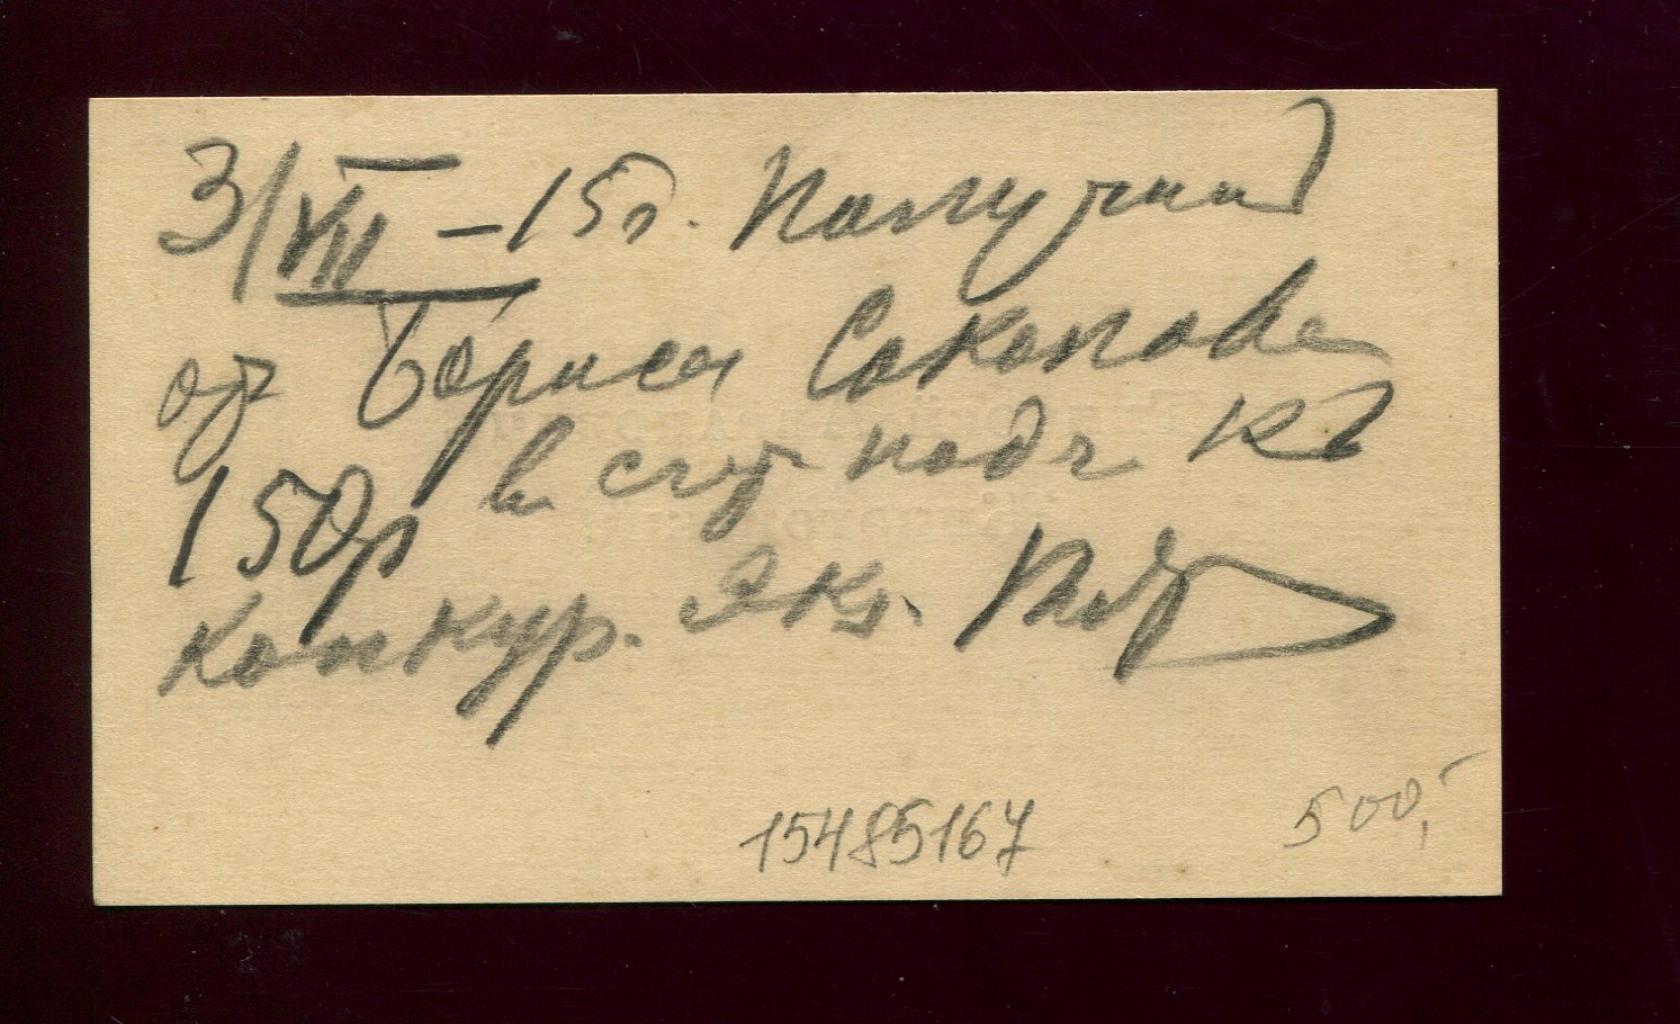 3/XII – 15 г. Получилъ
от Бориса Соколова
150р в счет
Конкур. Экз.
15485167
500,-